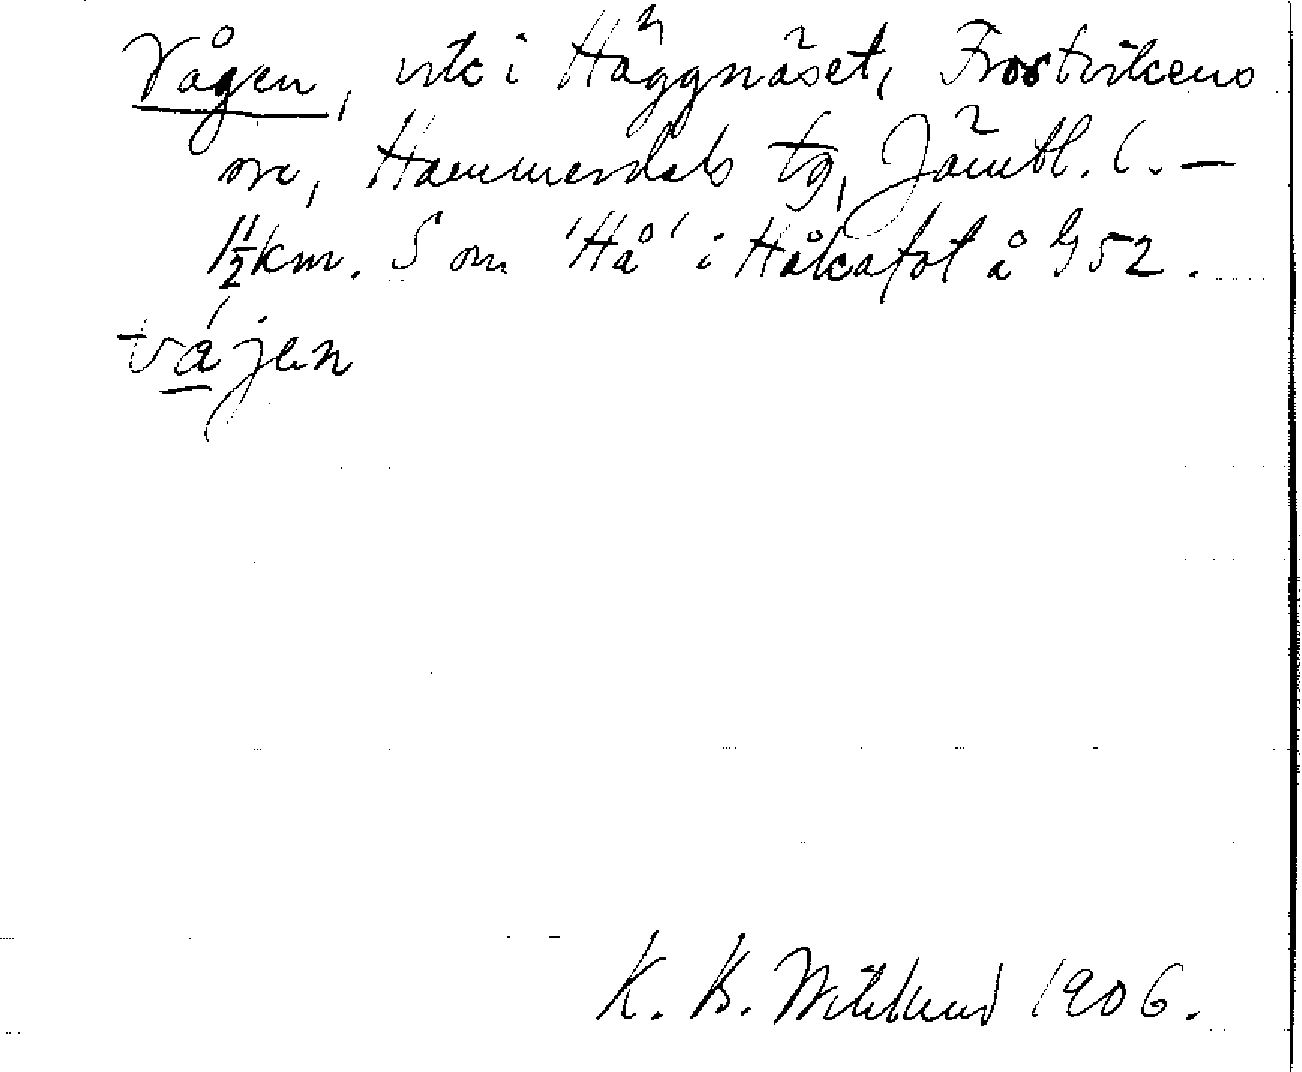 Vågen, vik i Häggnäset, Frostvikens
sn, Hammerdals tg, Jämtl. l. —
1½ km. S om 'Hå' i Håkafot å G52.
vájen
K. B. Wiklund 1906.